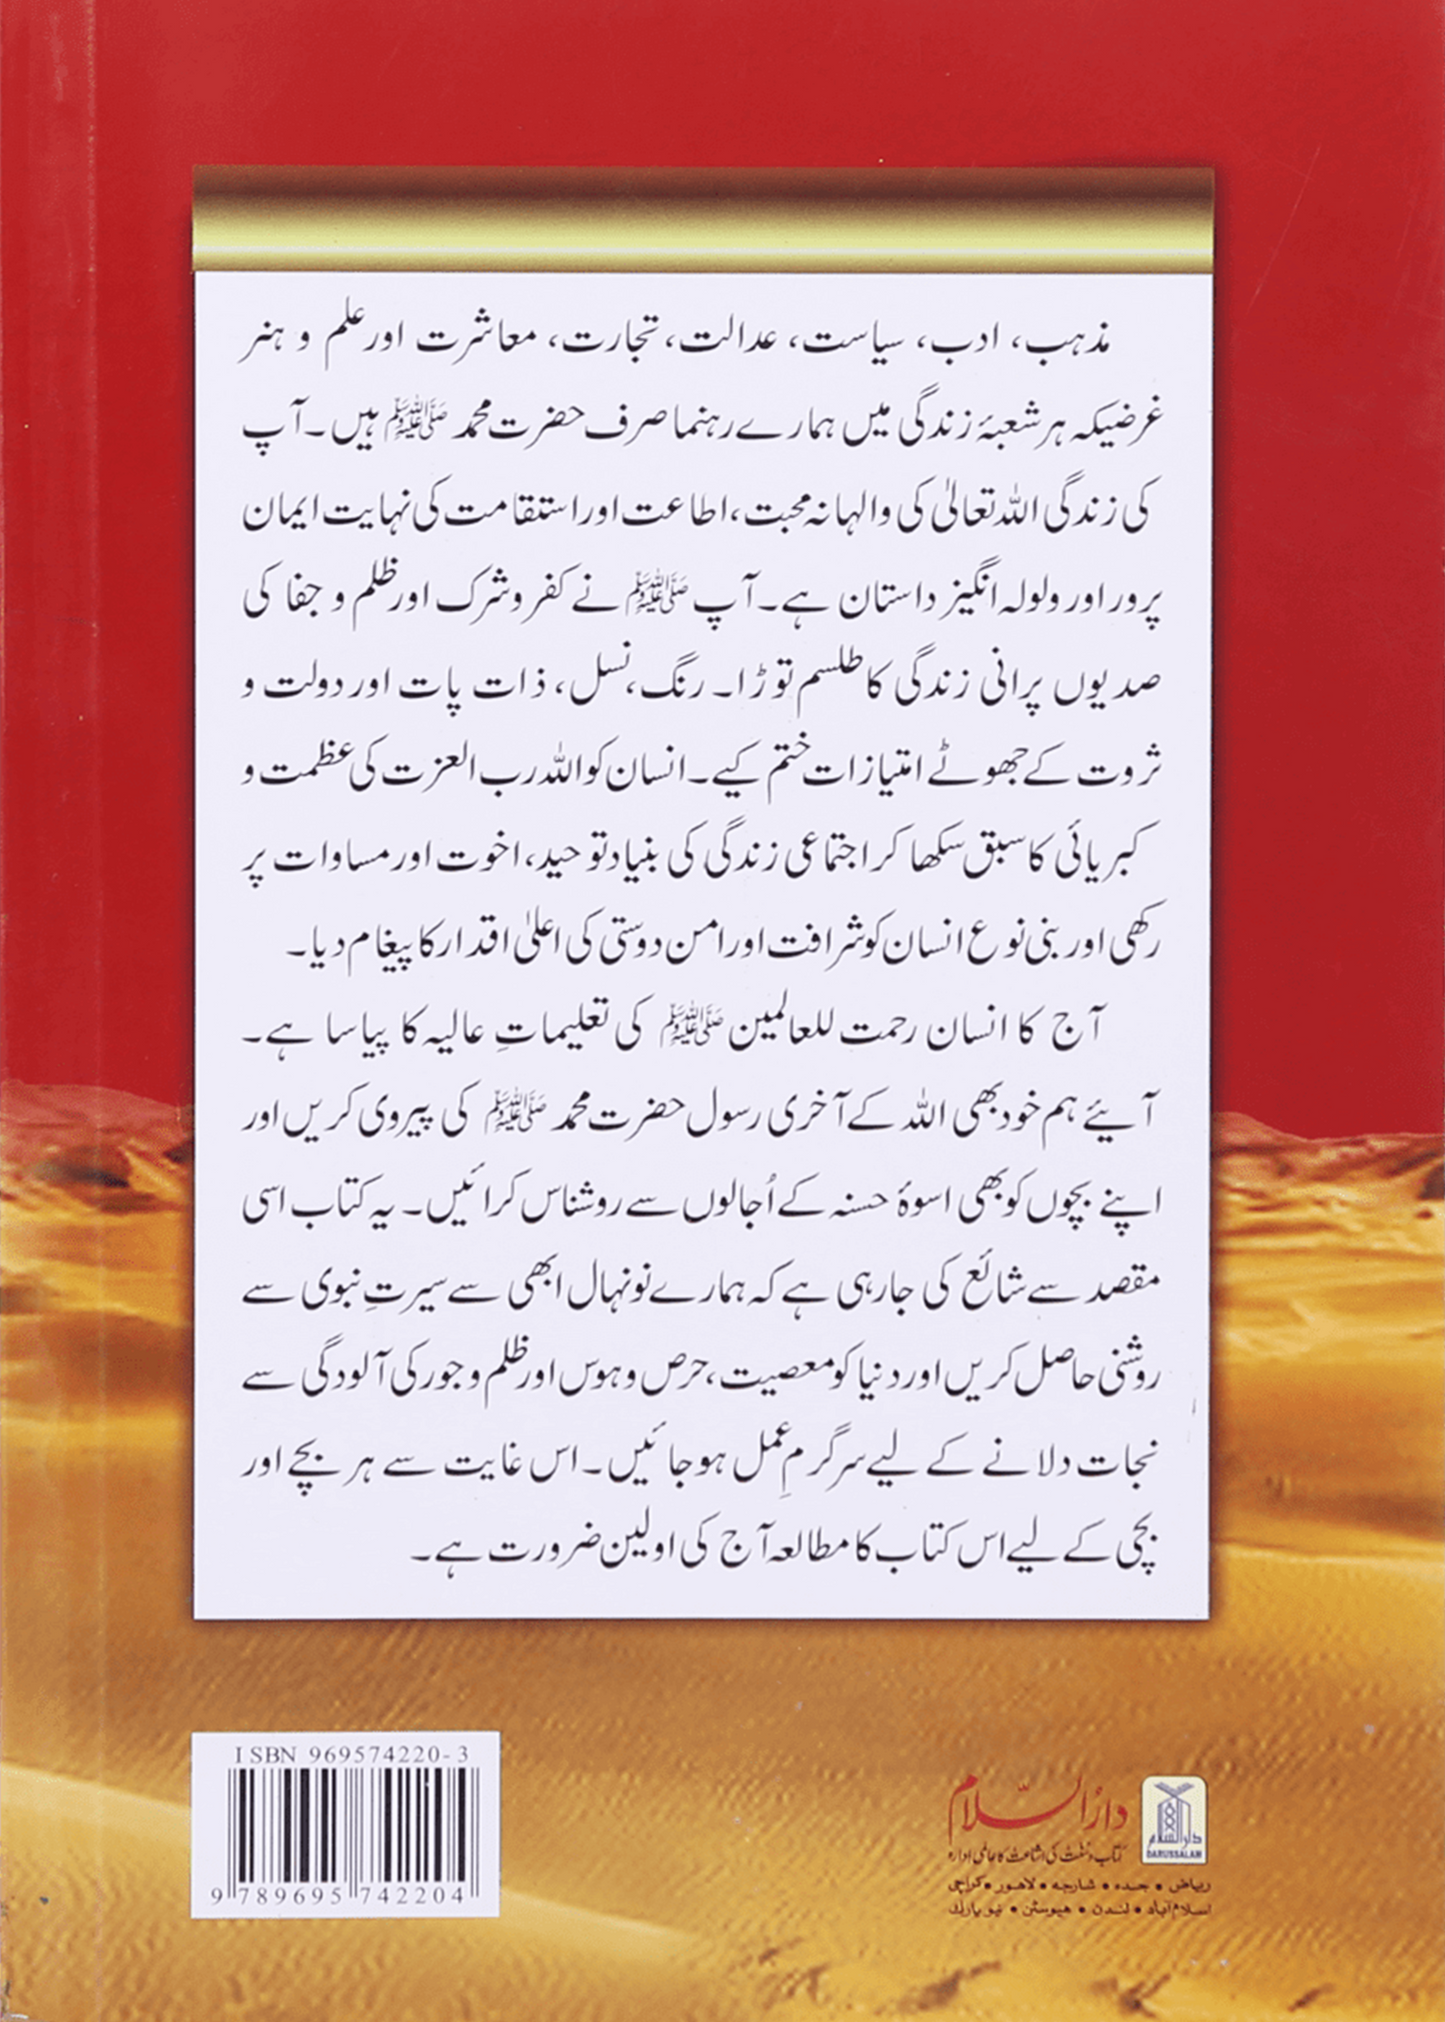 مذہب، ادب، سیاست، عدالت، تجارت، معاشرت اور علم و ہنر
غرضیکہ ہر شعبۂ زندگی میں ہمارے رہنما صرف حضرت محمد ﷺ ہیں۔ آپ
کی زندگی اللہ تعالیٰ کی والہانہ محبت، اطاعت اور استقامت کی نہایت ایمان
پرور اور ولولہ انگیز داستان ہے۔ آپ ﷺ نے کفر و شرک اور ظلم و جفا کی
صدیوں پرانی زندگی کا طلسم توڑا۔ رنگ، نسل، ذات پات اور دولت و
ثروت کے جھوٹے امتیازات ختم کیے۔ انسان کو اللہ رب العزت کی عظمت و
کبریائی کا سبق سکھا کر اجتماعی زندگی کی بنیاد توحید، اخوت اور مساوات پر
رکھی اور بنی نوع انسان کو شرافت اور امن دوستی کی اعلیٰ اقدار کا پیغام دیا۔
آج کا انسان رحمت للعالمین ﷺ کی تعلیماتِ عالیہ کا پیاسا ہے۔
آیئے ہم خود بھی اللہ کے آخری رسول حضرت محمد ﷺ کی پیروی کریں اور
اپنے بچوں کو بھی اسوۂ حسنہ کے اُجالوں سے روشناس کرائیں۔ یہ کتاب اسی
مقصد سے شائع کی جارہی ہے کہ ہمارے نونہال ابھی سے سیرتِ نبوی سے
روشنی حاصل کریں اور دنیا کو معصیت، حرص و ہوس اور ظلم و جور کی آلودگی سے
نجات دلانے کے لیے سرگرمِ عمل ہو جائیں۔ اس غایت سے ہر بچے اور
بچی کے لیے اس کتاب کا مطالعہ آج کی اولین ضرورت ہے۔
ISBN 969574220-3
9 789695 742204
دارُالسّلام
کتاب و سنّت کی اشاعت کا عالمی ادارہ
ریاض • جدہ • شارجہ • لاہور • کراچی
اسلام آباد • لندن • ہیوسٹن • نیو یارک
دارالسلام
DARUSSALAM